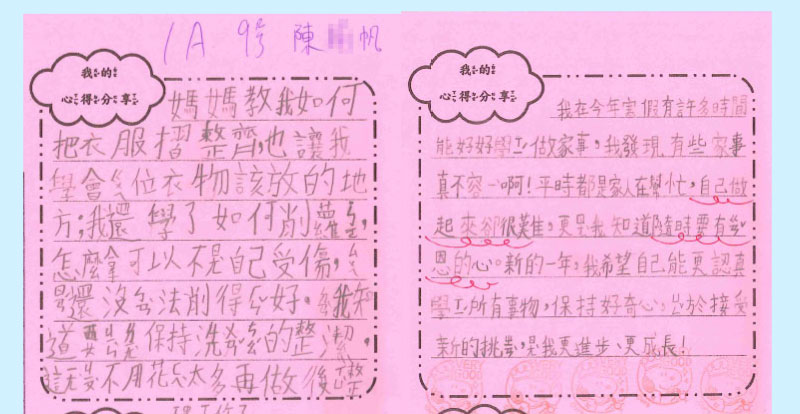 1A 9号 陳 帆
我的
心得分享
媽媽教我如何
把衣服摺整齊,也讓我
學會ㄍ位衣物該放的地
方;我還學了如何削蘿
怎麼拿可以不是自己受傷,
還沒 法削得 好。 我知
道 保持洗 的整潔,
不用花 太多再做後
我的
心得分享
我在今年寒假有許多時間
能好好學 做家事,我發現有些家事
真不容一啊!平時都是家人在幫忙,自己做
起來卻很難,更是我知道隨時要有
恩的心。新的一年,我希望自己能更認真
學 所有事物,保持好奇心, 於接受
新的挑 ,是我更進步、更成長!